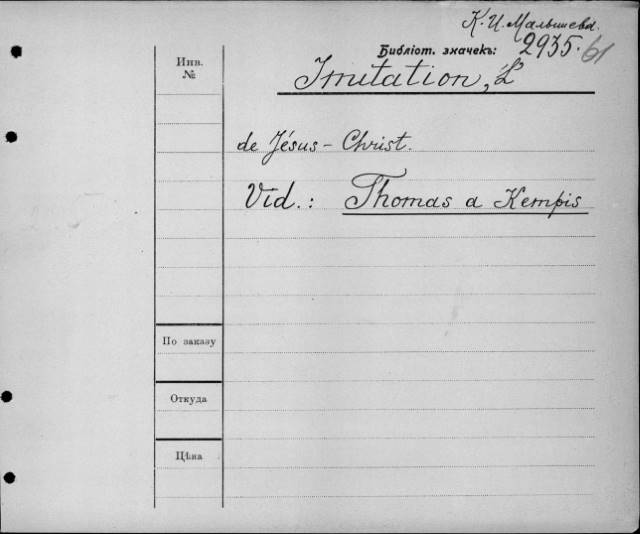 К. И. Малышева.
Библіот. значекъ: 2935. 61
Инв. №
Imitation, L'
de Jésus - Christ.
Vid.: Thomas a Kempis
По заказу
Откуда
Цѣна